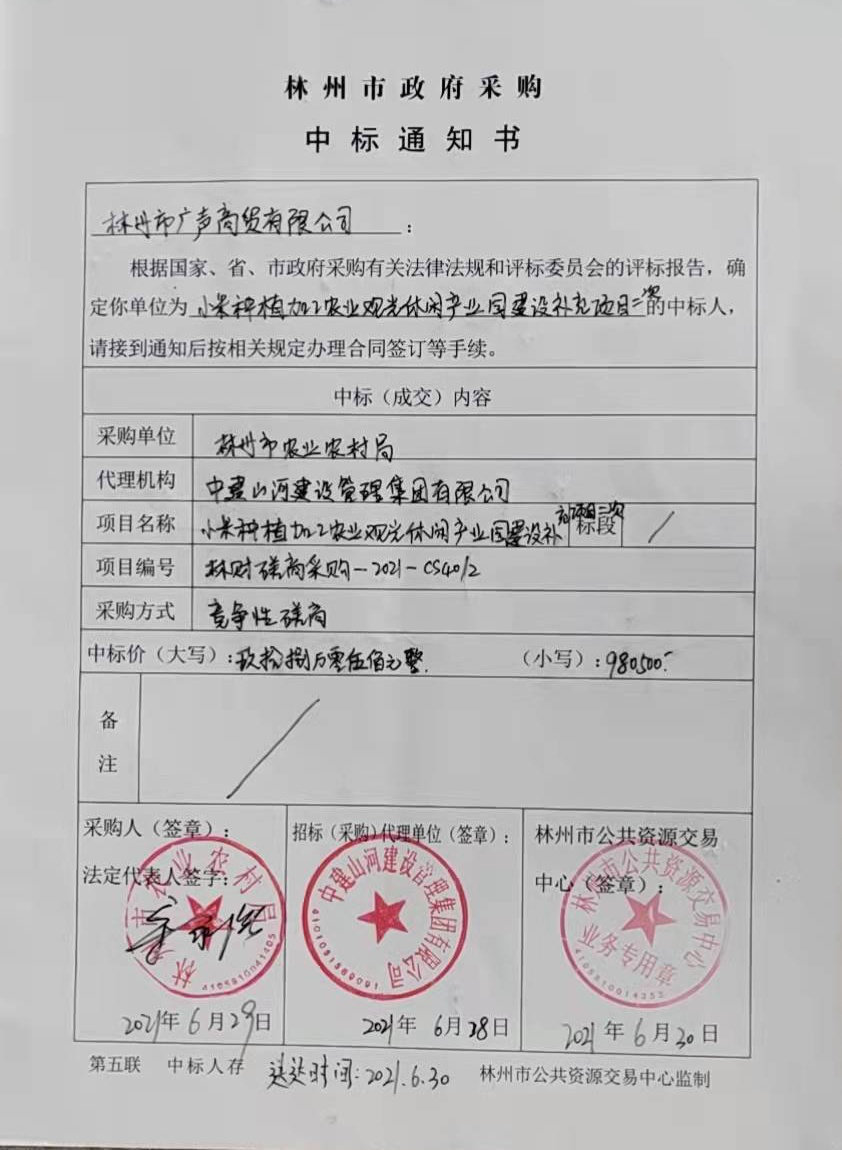 林州市政府采购
中标通知书
林州市广声商贸有限公司：
根据国家、省、市政府采购有关法律法规和评标委员会的评标报告，确
定你单位为 小米种植加工农业观光休闲产业园建设补充项目二次 的中标人，
请接到通知后按相关规定办理合同签订等手续。
中标（成交）内容
采购单位 林州市农业农村局
代理机构 中建山河建设管理集团有限公司
项目名称 小米种植加工农业观光休闲产业园建设补充项目二次 标段 /
项目编号 林财磋商采购-2021-CS40/2
采购方式 竞争性磋商
中标价（大写）：玖拾捌万零伍佰元整. （小写）：980500.-
备注 /
采购人（签章）：
法定代表人签字：
林州市农业农村局
4105810041405
2021年6月29日
招标（采购）代理单位（签章）：
中建山河建设管理集团有限公司
4101051569091
2021年 6月28日
林州市公共资源交易
中心（签章）：
林州市公共资源交易中心
业务专用章
4105810014353
2021年6月30日
第五联 中标人存 送达时间：2021.6.30 林州市公共资源交易中心监制